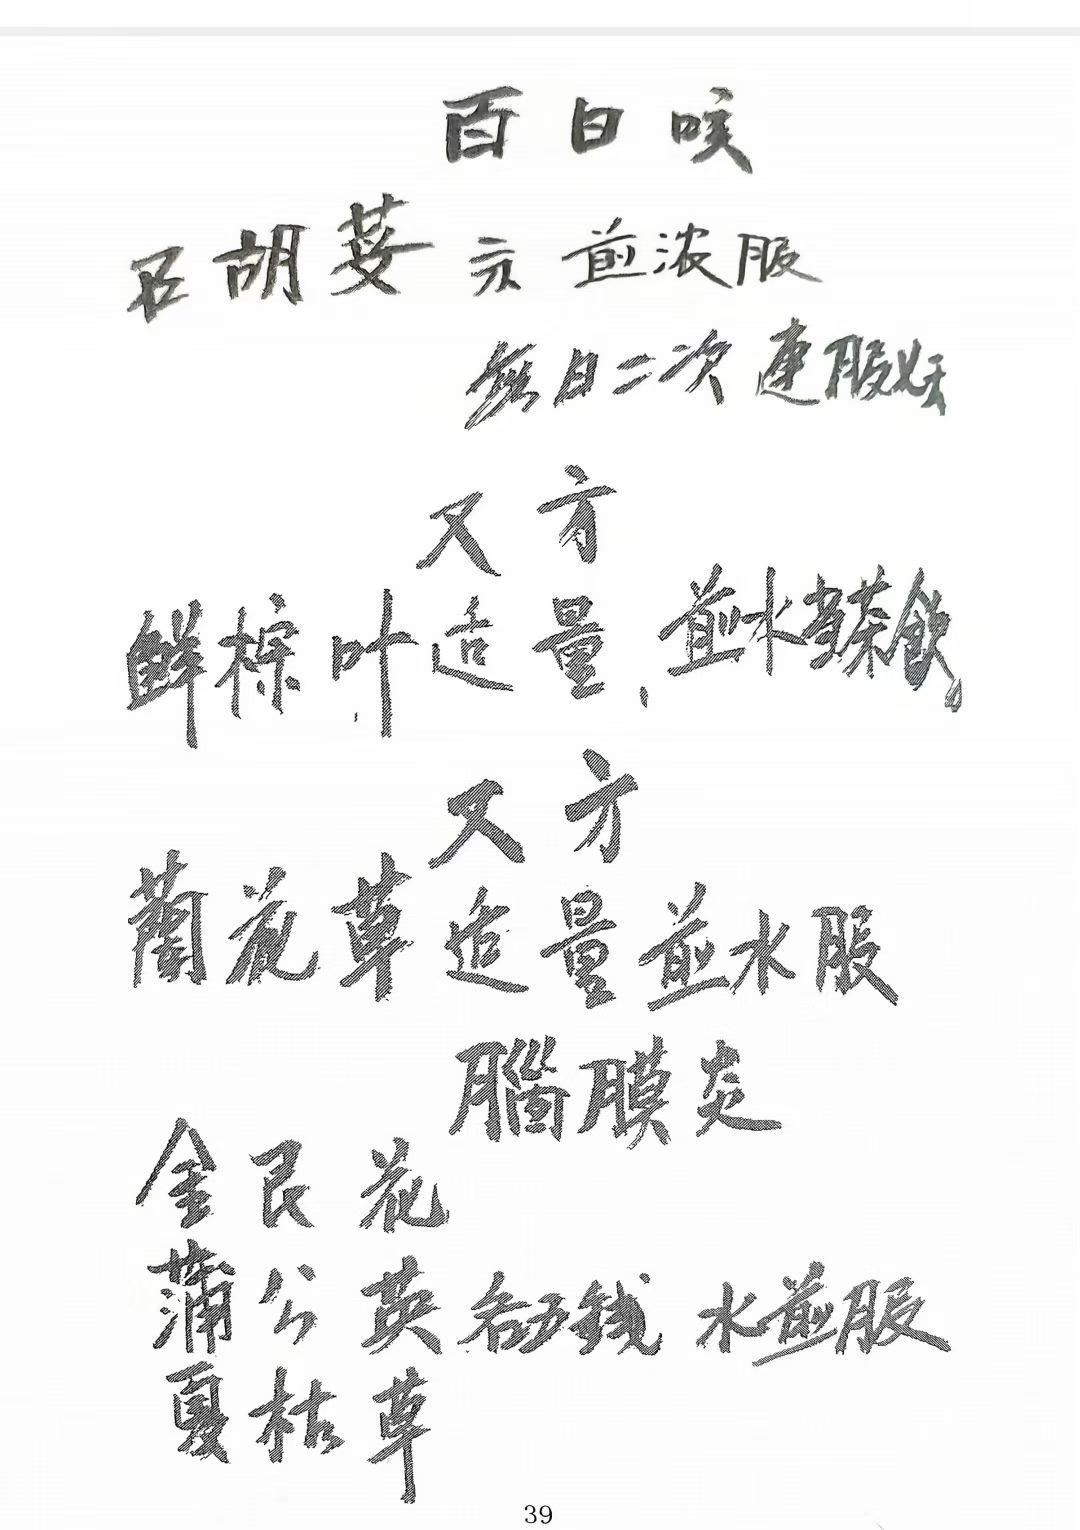 百日咳
石胡荽 亓 煎浓服
每日二次 連服
又方
鲜棕叶适量,煎水当茶飲。
又方
蘭花草适量煎水服
腦膜炎
金艮花
蒲公英各五錢 水煎服
夏枯草
39